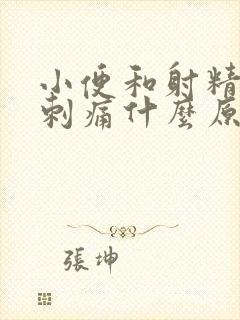 小便和射精
刺痛什麼原
張坤